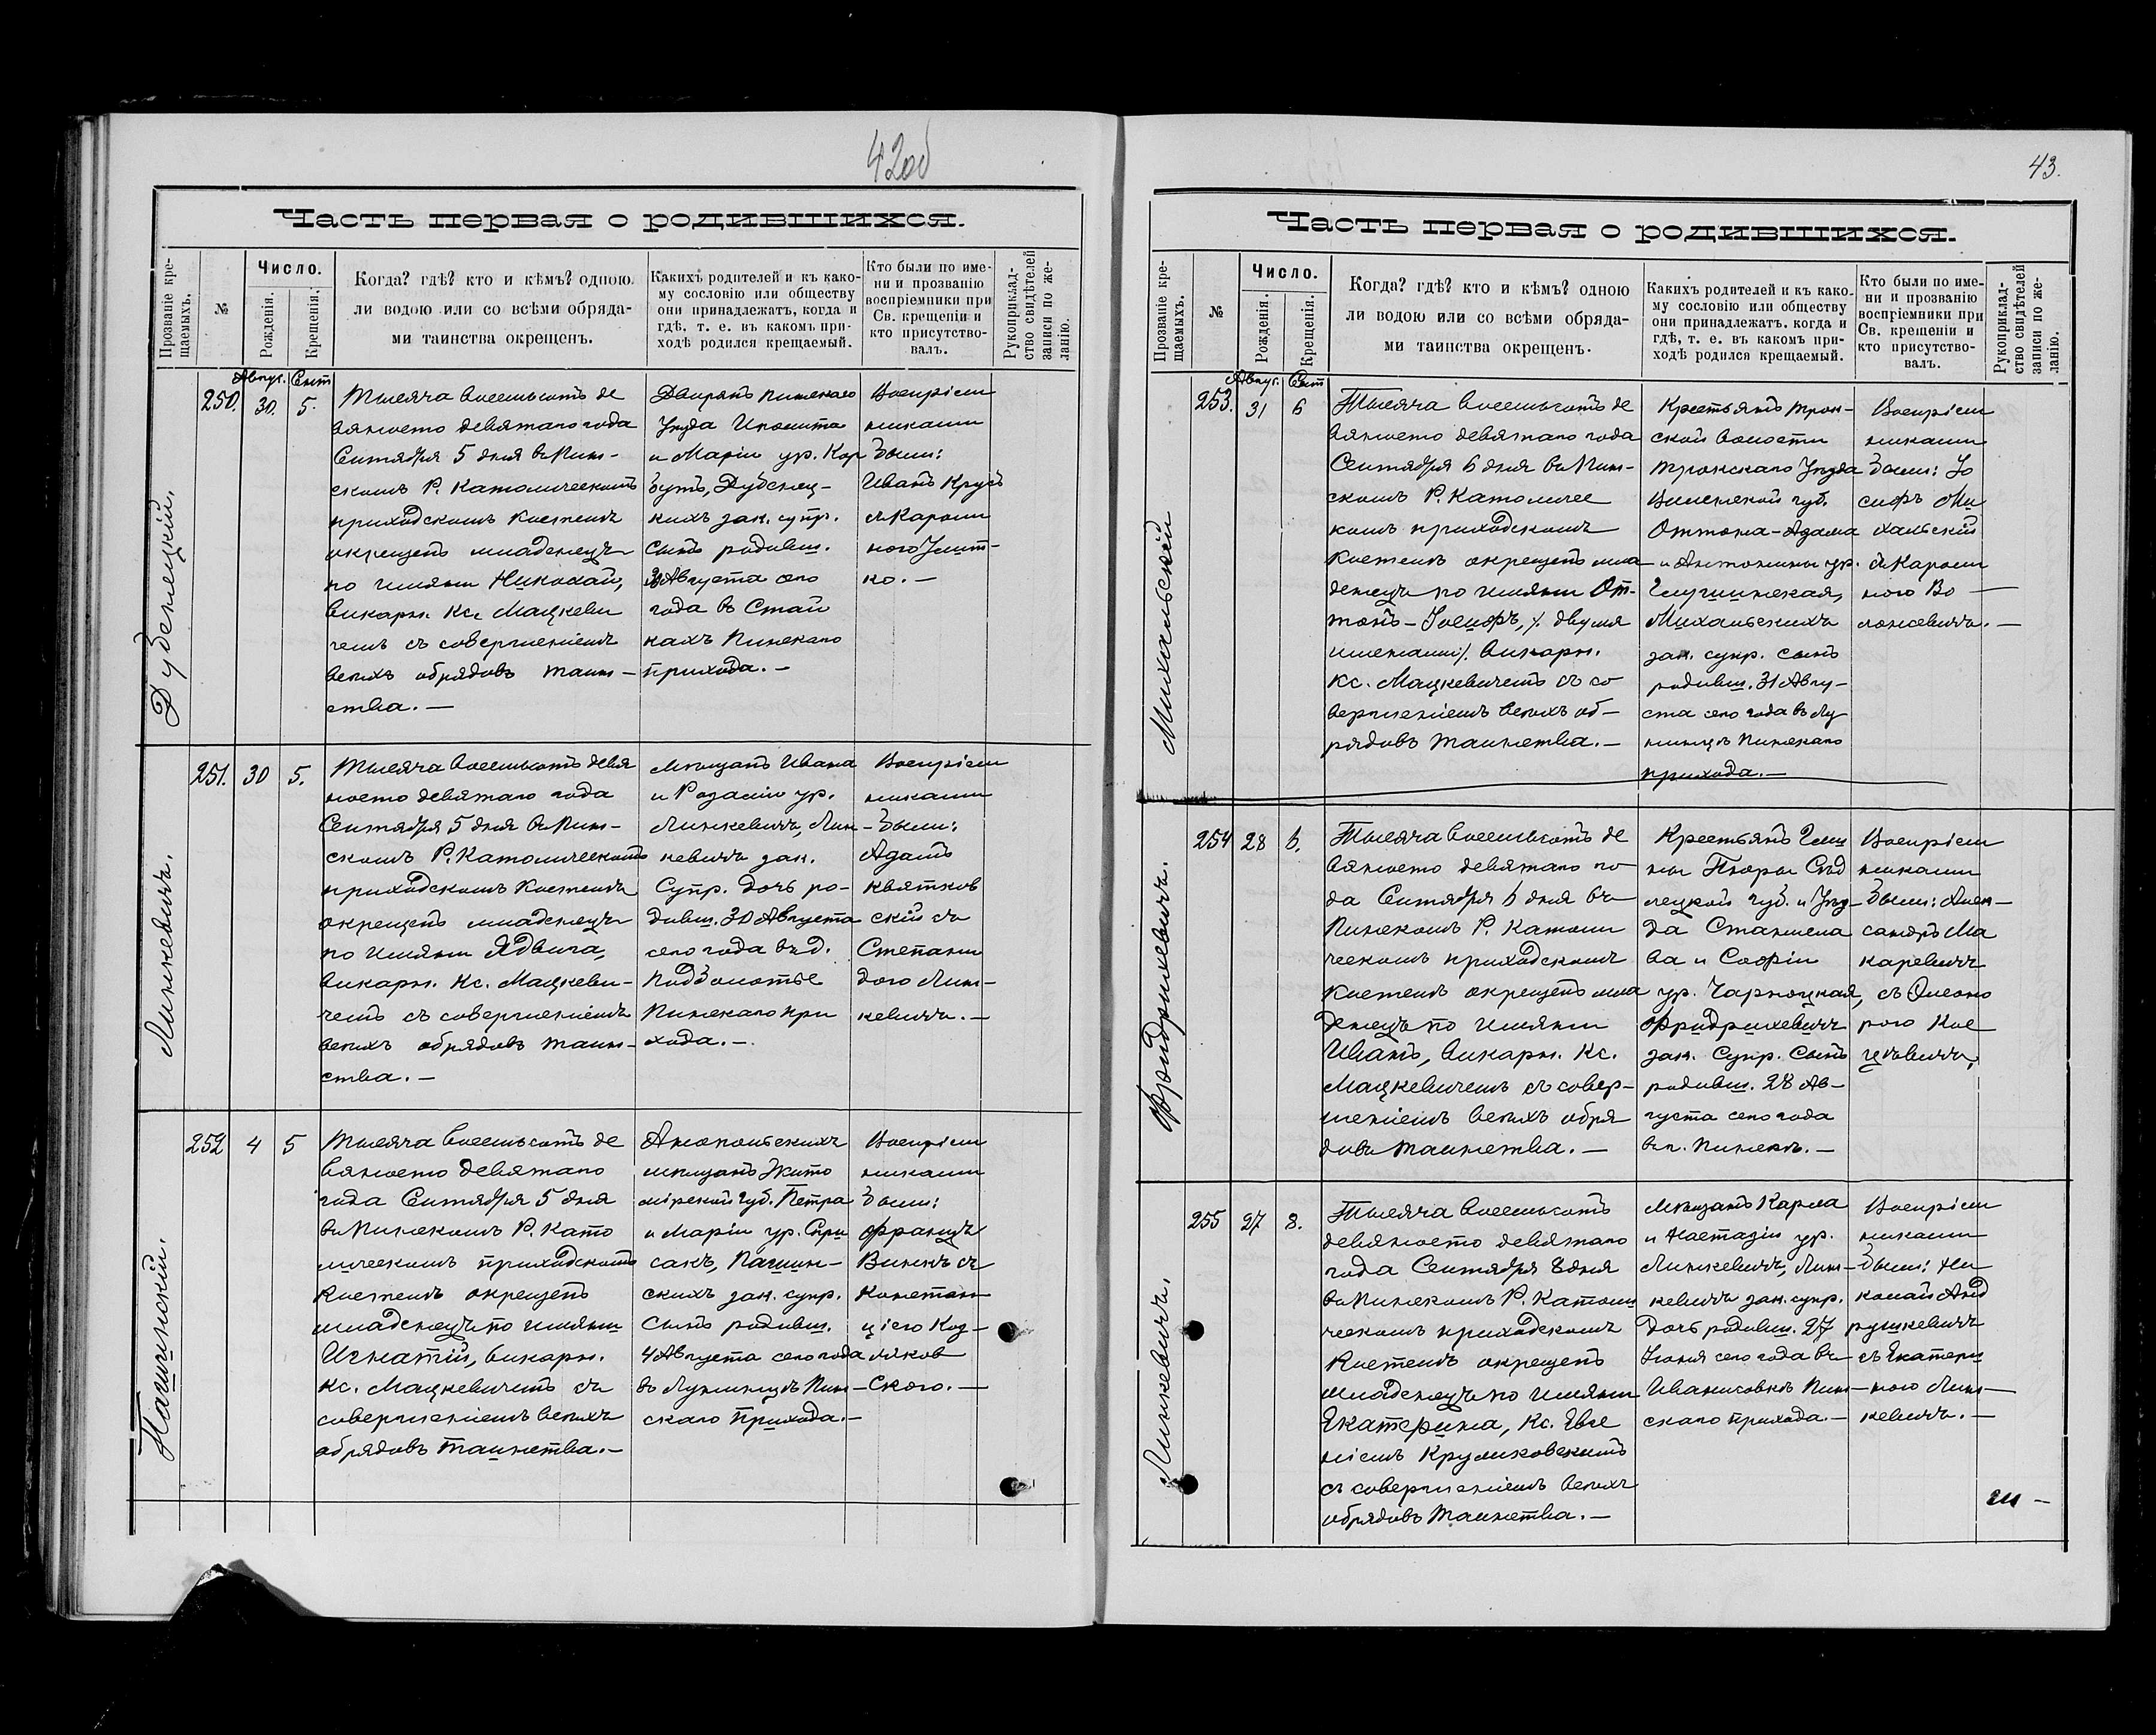 42об
Часть первая о родившихся.
Прозваніе кре-
щаемыхъ.
№
Число.
Рожденія.
Крещенія.
Когда? гдѣ? кто и кѣмъ? одною
ли водою или со всѣми обряда-
ми таинства окрещенъ.
Какихъ родителей и къ како-
му сословію или обществу
они принадлежатъ, когда и
гдѣ, т. е. въ какомъ при-
ходѣ родился крещаемый.
Кто были по име-
ни и прозванію
воспріемники при
Св. крещеніи и
кто присутство-
валъ.
Рукоприклад-
ство свидѣтелей
записи по же-
ланію.
Дубенецкій.
250.
Авгус. 30.
Сент 5.
Тысяча восемьсотъ де
вяносто девятаго года
Сентября 5 дня въ Пин-
скомъ Р. Католическомъ
приходскомъ костелѣ
окрещенъ младенецъ
по имяни Николай,
викарн. Кс. Мацкеви
чемъ съ совершеніемъ
всѣхъ обрядовъ таин-
ства. —
Дворянъ Пинскаго
Уѣзда Иполита
и Маріи ур. Кор
бутъ, Дубенец-
кихъ зак. супр.
Сынъ родивш.
30 Августа сего
года въ Стай
кахъ Пинскаго
прихода. —
Воспріем
никами
были:
Иванъ Крусь
съ Кароли
ною
ко. —
Линкевичъ.
251.
30
5.
Тысяча восемьсотъ девя
носто девятаго года
Сентября 5 дня въ Пин-
скомъ Р. Католическомъ
приходскомъ костелѣ
окрещенъ младенецъ
по имяни Ядвига,
викарн. Кс. Мацкеви-
чемъ съ совершеніемъ
всѣхъ обрядовъ таин-
ства. —
Мѣщанъ Ивана
и Розаліи ур.
Линкевичъ, Лин-
кевичъ зак.
Супр. дочь ро-
дивш. 30 Августа
сего года въ д.
Подболотье
Пинскаго при
хода. —
Воспріем
никами
были:
Адамъ
Квятков
скій съ
Степани
дою Лин-
кевичъ. —
Пашинскій.
252
4
5
Тысяча восемьсотъ де
вяносто девятаго
года Сентября 5 дня
въ Пинскомъ Р. Като
лическомъ приходскомъ
костелѣ окрещенъ
младенецъ по имяни
Игнатій, викарн.
Кс. Мацкевичемъ съ
совершеніемъ всѣхъ
обрядовъ таинства. —
Анопольскихъ
мѣщанъ Жито
мірской губ. Петра
и Маріи ур. Спри
сакъ, Пашин-
скихъ зак. супр.
Сынъ родивш.
4 Августа сего года
въ Лунинцѣ Пин-
скаго прихода. —
Воспріем
никами
были:
Францъ
Винкъ съ
Констан
ціею Коз-
ляков
ского. —
43.
Часть первая о родившихся.
Прозваніе кре-
щаемыхъ.
№
Число.
Рожденія.
Крещенія.
Когда? гдѣ? кто и кѣмъ? одною
ли водою или со всѣми обряда-
ми таинства окрещенъ.
Какихъ родителей и къ како-
му сословію или обществу
они принадлежатъ. когда и
гдѣ, т. е. въ какомъ при-
ходѣ родился крещаемый.
Кто были по име-
ни и прозванію
воспріемники при
Св. крещеніи и
кто присутство-
валъ.
Рукоприклад-
ство свидѣтелей
записи по же-
ланію.
Михальскій
253.
Авгус. 31
Сент 6
Тысяча восемьсотъ де
вяносто девятаго года
Сентября 6 дня въ Пин-
скомъ Р. Католичес
комъ приходскомъ
костелѣ окрещенъ мла
денецъ по имяни От-
тонъ-Іосифъ, /. двумя
именами /. викарн.
Кс. Мацкевичемъ съ со
вершеніемъ всѣхъ об-
рядовъ таинства. —
Крестьянъ Трок-
ской волости
Трокскаго Уѣзда
Виленской губ.
Оттона-Адама
и Антонины ур.
Михальскихъ
зак. супр. сынъ
родивш. 31 Авгу-
ста сего года въ Лу
нинцѣ Пинскаго
прихода. —
Воспріем
никами
были: Іо
сифъ Ми
хальскій
съ Кароли
ною Во
лонсевичъ. —
Фридрихевичъ.
254
28
6.
Тысяча восемьсотъ де
вяносто девятаго го-
да Сентября 6 дня въ
Пинскомъ Р. Католи
ческомъ приходскомъ
костелѣ окрещенъ мла
денецъ по имяни
Иванъ, викарн. Кс.
Мацкевичемъ съ совер-
шеніемъ всѣхъ обря
довъ таинства. —
Крестьянъ Гми
ны Пюры Сѣд
лецкой губ. и Уѣз-
да Станисла
ва и Софіи
ур. Чарноцкая,
Фридрихевичъ
зак. Супр. Сынъ
родивш. 28 Ав-
густа сего года
въ г. Пинскѣ. —
Воспріем
никами
были: Алек-
сандръ Ма
каревичъ
съ Элеоно
рою Кос
цѣвичъ,
Линкевичъ.
255
27
8.
Тысяча восемьсотъ
девяносто девятаго
года Сентября 8 дня
въ Пинскомъ Р. Католи
ческомъ приходскомъ
костелѣ окрещенъ
младенецъ по имяни
Екатерина, Кс. Евге
ніемъ Круликовскимъ
съ совершеніемъ всѣхъ
обрядовъ таинства. —
Мѣщанъ Карла
и Настазіи ур.
Линкевичъ, Лин-
кевичъ зак. супр.
Дочь родивш. 27
Іюня сего года въ
Иванисовкѣ Пин-
скаго прихода. —
Воспріем
никами
были: Ни
колай Анд
рушкевичъ
съ Екатери
ною Лин-
кевичъ. —